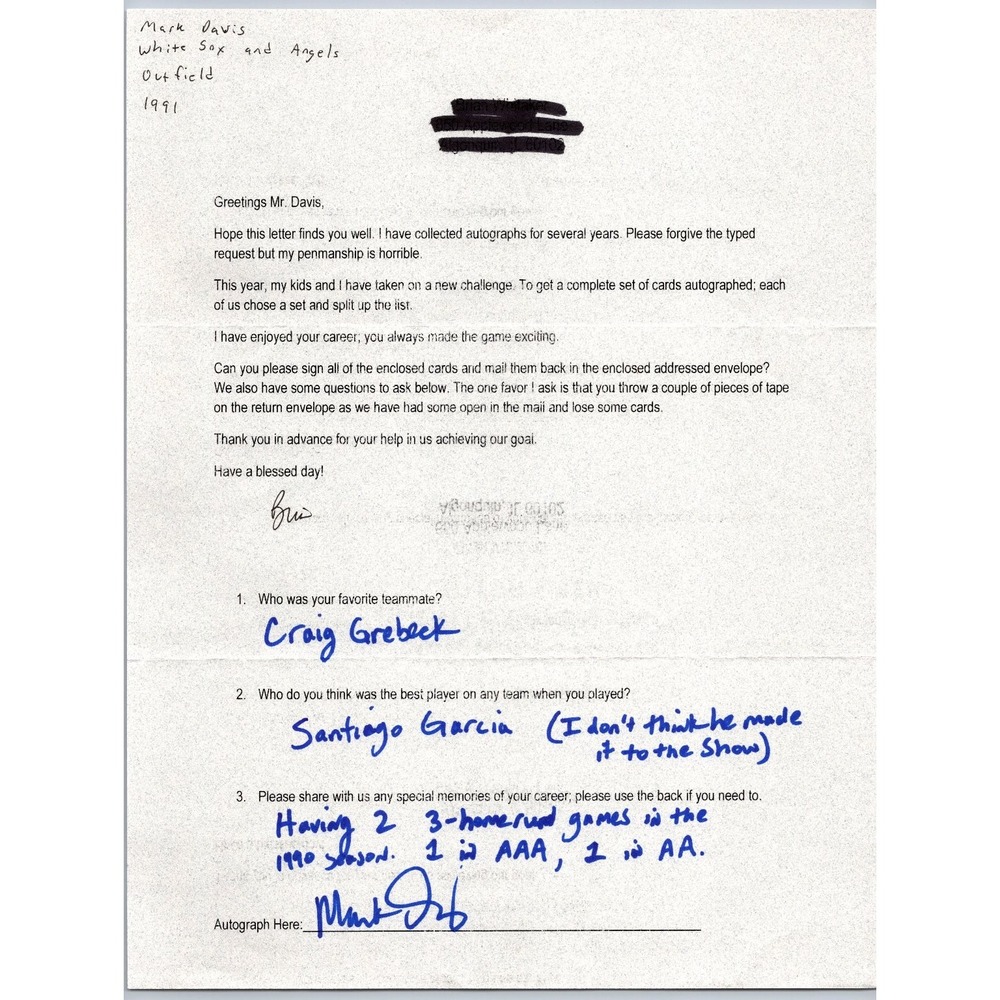 Mark Davis
White Sox and Angels
Outfield
1991
Greetings Mr. Davis,
Hope this letter finds you well. I have collected autographs for several years. Please forgive the typed
request but my penmanship is horrible.
This year, my kids and I have taken on a new challenge. To get a complete set of cards autographed; each
of us chose a set and split up the list.
I have enjoyed your career; you always made the game exciting.
Can you please sign all of the enclosed cards and mail them back in the enclosed addressed envelope?
We also have some questions to ask below. The one favor I ask is that you throw a couple of pieces of tape
on the return envelope as we have had some open in the mail and lose some cards.
Thank you in advance for your help in us achieving our goal.
Have a blessed day!
1. Who was your favorite teammate?
Craig Grebeck
2. Who do you think was the best player on any team when you played?
Santiago Garcia (I don't think he made
it to the Show)
3. Please share with us any special memories of your career; please use the back if you need to.
Having 2 3-homerun games in the
1990 season. 1 in AAA, 1 in AA.
Autograph Here: Mark